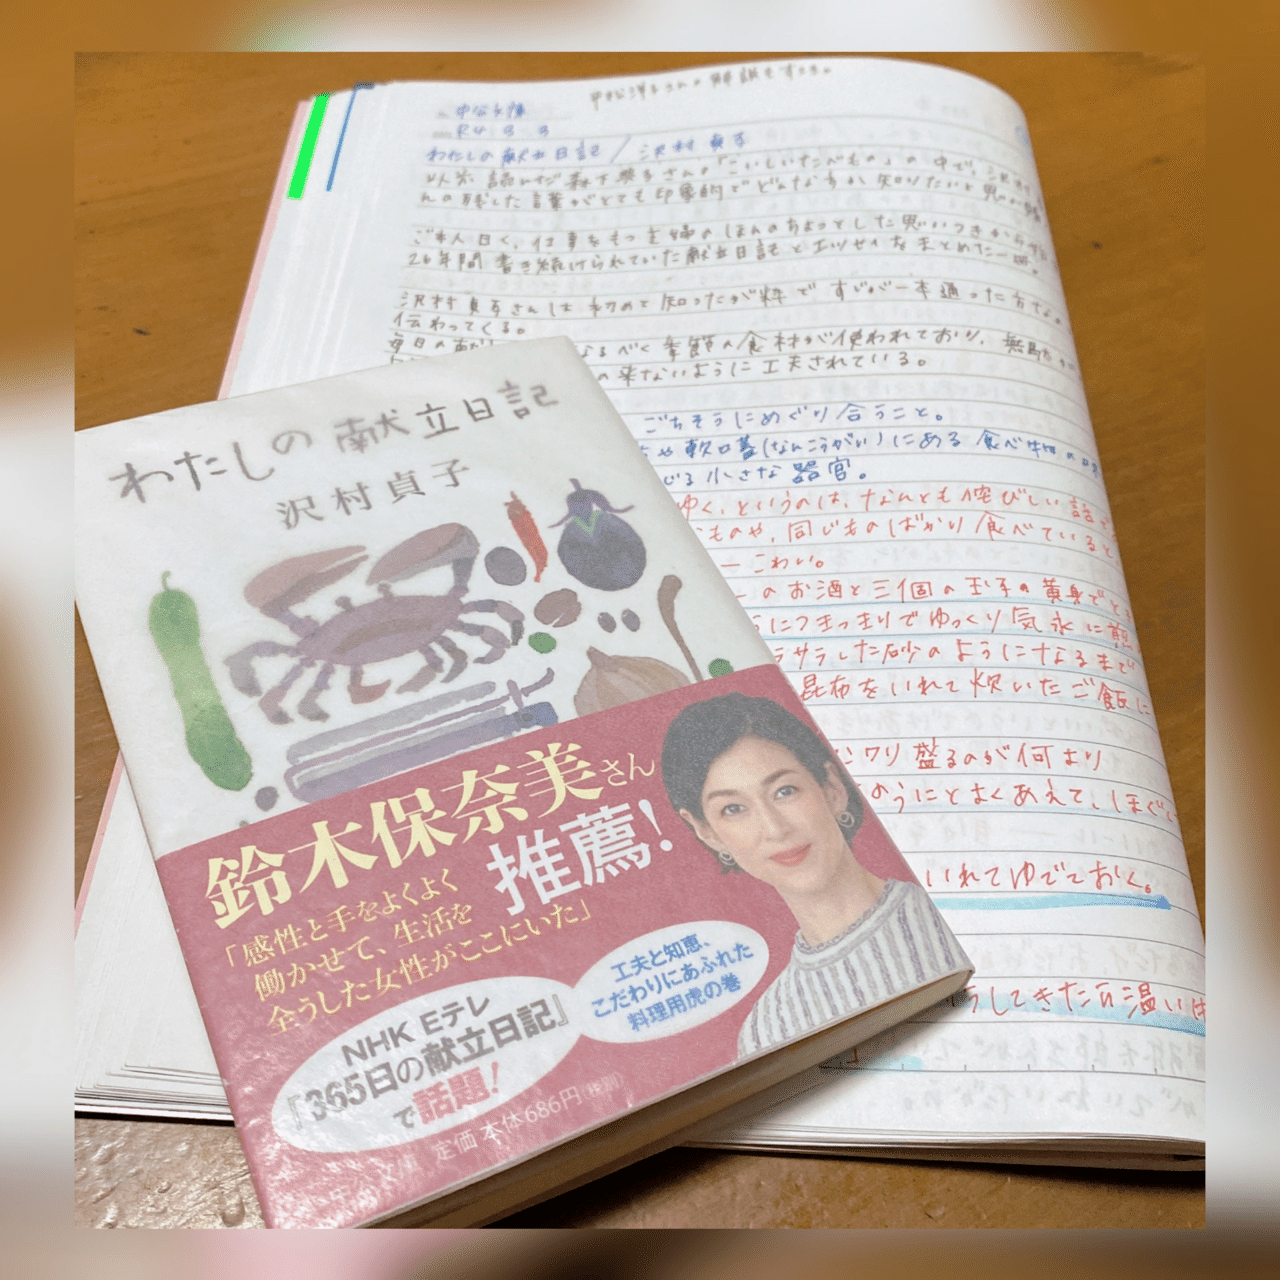 中公文庫
R4 3 3
わたしの献立日記／沢村貞子
以前読んだ森下典子さんの「こいしいたべもの」の中で、沢村
んの残した言葉がとても印象的でどんな方か知りたいと思い
ご本人曰く、仕事をもつ主婦のほんのちょっとした思いつきから
26年間書き続けられていた献立日記とエッセイをまとめた一冊。
沢村貞子さんは初めて知ったが粋ですじが一本通った方な
伝わってくる。
毎日の献 なるべく季節の食材が使われており、無駄
の来ないように工夫されている。
ごちそうにめぐり合うこと。
や軟口蓋(なんこうがい)にある食べ物の
じる小さな器官。
ゆく、というのは、なんとも侘びしい話
ものや、同じものばかり食べていると
ーこわい。
のお酒と三個の玉子の黄身で
につきっきりでゆっくり気永に煎
ラサラした砂のようになるまで
昆布をいれて炊いたご飯に
ンワリ盛るのが何より
のうにとよくあえて、ほぐし
いれてゆでておく。
うしてきたら温い
わたしの献立日記
沢村貞子
鈴木保奈美さん
推薦!
「感性と手をよくよく
働かせて、生活を
全うした女性がここにいた」
工夫と知恵、
こだわりにあふれた
料理用虎の巻
NHK Eテレ
『365日の献立日記』
で話題!
定価 本体686円(税別)